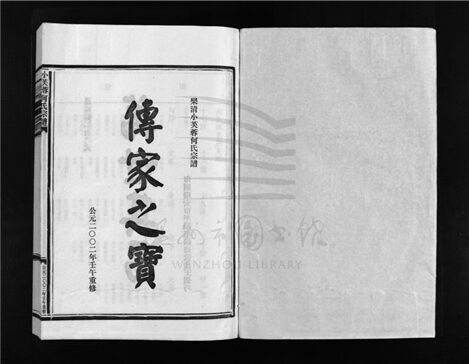 樂清小芙蓉何氏宗譜
傳家之寶
公元二〇〇二年壬午重修
小芙蓉何氏宗譜
溫州市圖書館
WENZHOU LIBRARY